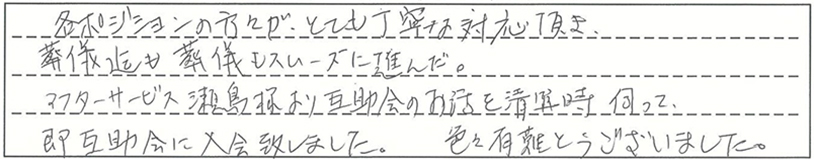 各ポジションの方々が、とても丁寧な対応頂き、
葬儀迄も葬儀もスムーズに進んだ。
アフターサービス瀬島様より互助会のお話を清算時伺って、
即互助会に入会致しました。 色々有難とうございました。